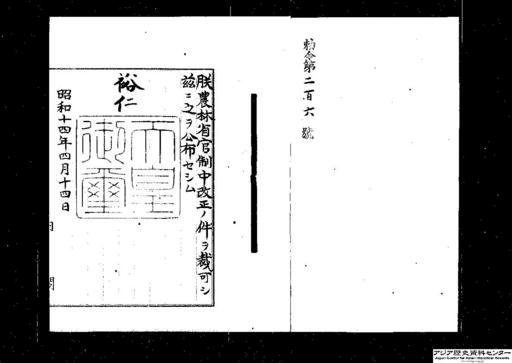 勅令第二百六號
朕農林省官制中改正ノ件ヲ裁可シ
茲ニ之ヲ公布セシム
裕仁
天皇御璽
昭和十四年四月十四日
アジア歴史資料センター
Japan Center for Asian Historical Records